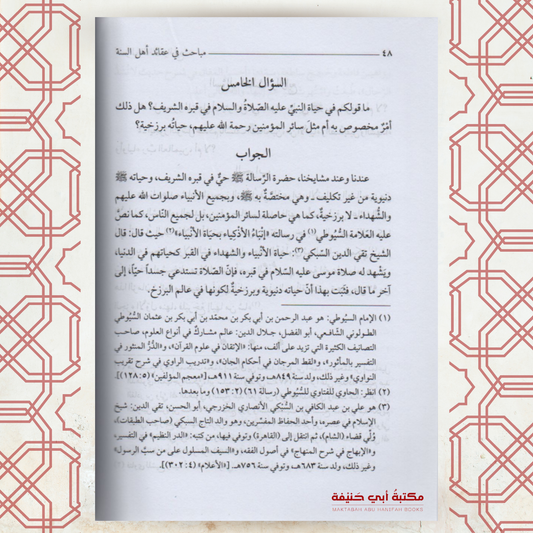 ٤٨ مباحث في عقائد أهل السنة
السؤال الخامس
ما قولكم في حياة النبيِّ عليه الصّلاةُ والسلام في قبره الشريف؟ هل ذلك
أمْرٌ مخصوص به أم مثل سائر المؤمنين رحمة الله عليهم، حياتُه برزخية؟
الجواب
عندنا وعند مشايخنا، حضرة الرِّسالة ﷺ حيٌّ في قبره الشريف، وحياته ﷺ
دنيوية من غير تكليف ـ وهي مختصَّةٌ به ﷺ، وبجميع الأنبياء صلوات الله عليهم
والشُّهداء ـ لا برزخيةٌ، كما هي حاصلة لسائر المؤمنين، بل لجميع النّاس، كما نصَّ
عليه العلّامة السُّيوطي (١) في رسالته «إنْبَاءُ الأَذْكِياء بحيَاة الأنْبِيَاء»(٢) حيث قال: قال
الشيخ تقي الدين السبكي(٣): حياة الأنبياء والشهداء في القبر كحياتهم في الدنيا،
ويَشْهد له صلاة موسى عليه السَّلام في قبره، فإنَّ الصّلاة تستدعي جسداً حيّاً، إلى
آخر ما قال، فثَبَت بهذا أنّ حياته دنيوية وبرزخيةٌ لكونها في عالم البرزخ.
(١) الإمام السيُوطي: هو عبد الرحمن بن أبي بكر بن محمّد بن أبي بكر بن عثمان السُّيوطي
الطولوني الشّافعي، أبو الفضل، جلال الدين: عالم مشاركٌ في أنواع العلوم، صاحب
التصانيف الكثيرة التي تزيد على ألف، منها: «الإتقان في علوم القرآن»، و«الدُّرُّ المنثور في
التفسير بالمأثور»، و«لقط المرجان في أحكام الجان»، و«تدريب الراوي في شرح تقريب
النواوي» وغير ذلك، ولد سنة ٨٤٩هـ وتوفي سنة ٩١١هـ[«معجم المؤلفين» (٥: ١٢٨)].
(٢) انظر: الحاوي للفتاوي للسُّيوطي (رسالة ٦١) (٢: ١٥٣) وما بعدها.
(٣) هو علي بن عبد الكافي بن السُّبكي الأنصاري الخزرجي، أبو الحسن، تقي الدين: شيخ
الإسلام في عصره، وأحد الحفاظ المفسّرين، وهو والد التاج السبكي (صاحب الطبقات)،
وُلّي قضاء (الشام)، ثم انتقل إلى (القاهرة) وتوفي فيها، من كتبه: «الدر النظيم» في التفسير،
و«الإبهاج في شرح المنهاج» في أصول الفقه، و«السيف المسلول على من سبَّ الرسول»
وغير ذلك، ولد سنة ٦٨٣هـ، وتوفي سنة ٧٥٦هـ. [«الأعلام» (٤: ٣٠٢)].
مكتبة أبي حنيفة
MAKTABAH ABU HANIFAH BOOKS